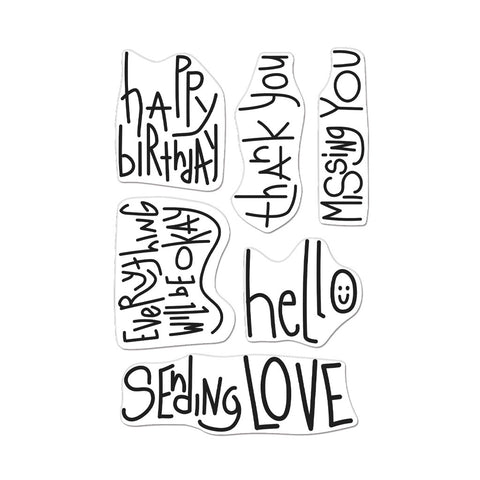 hAPPy
biRthdAY
thank you
Missing YOU
EVERythiNG
WILL bE OKAY
hello
SEndiNg LOVE